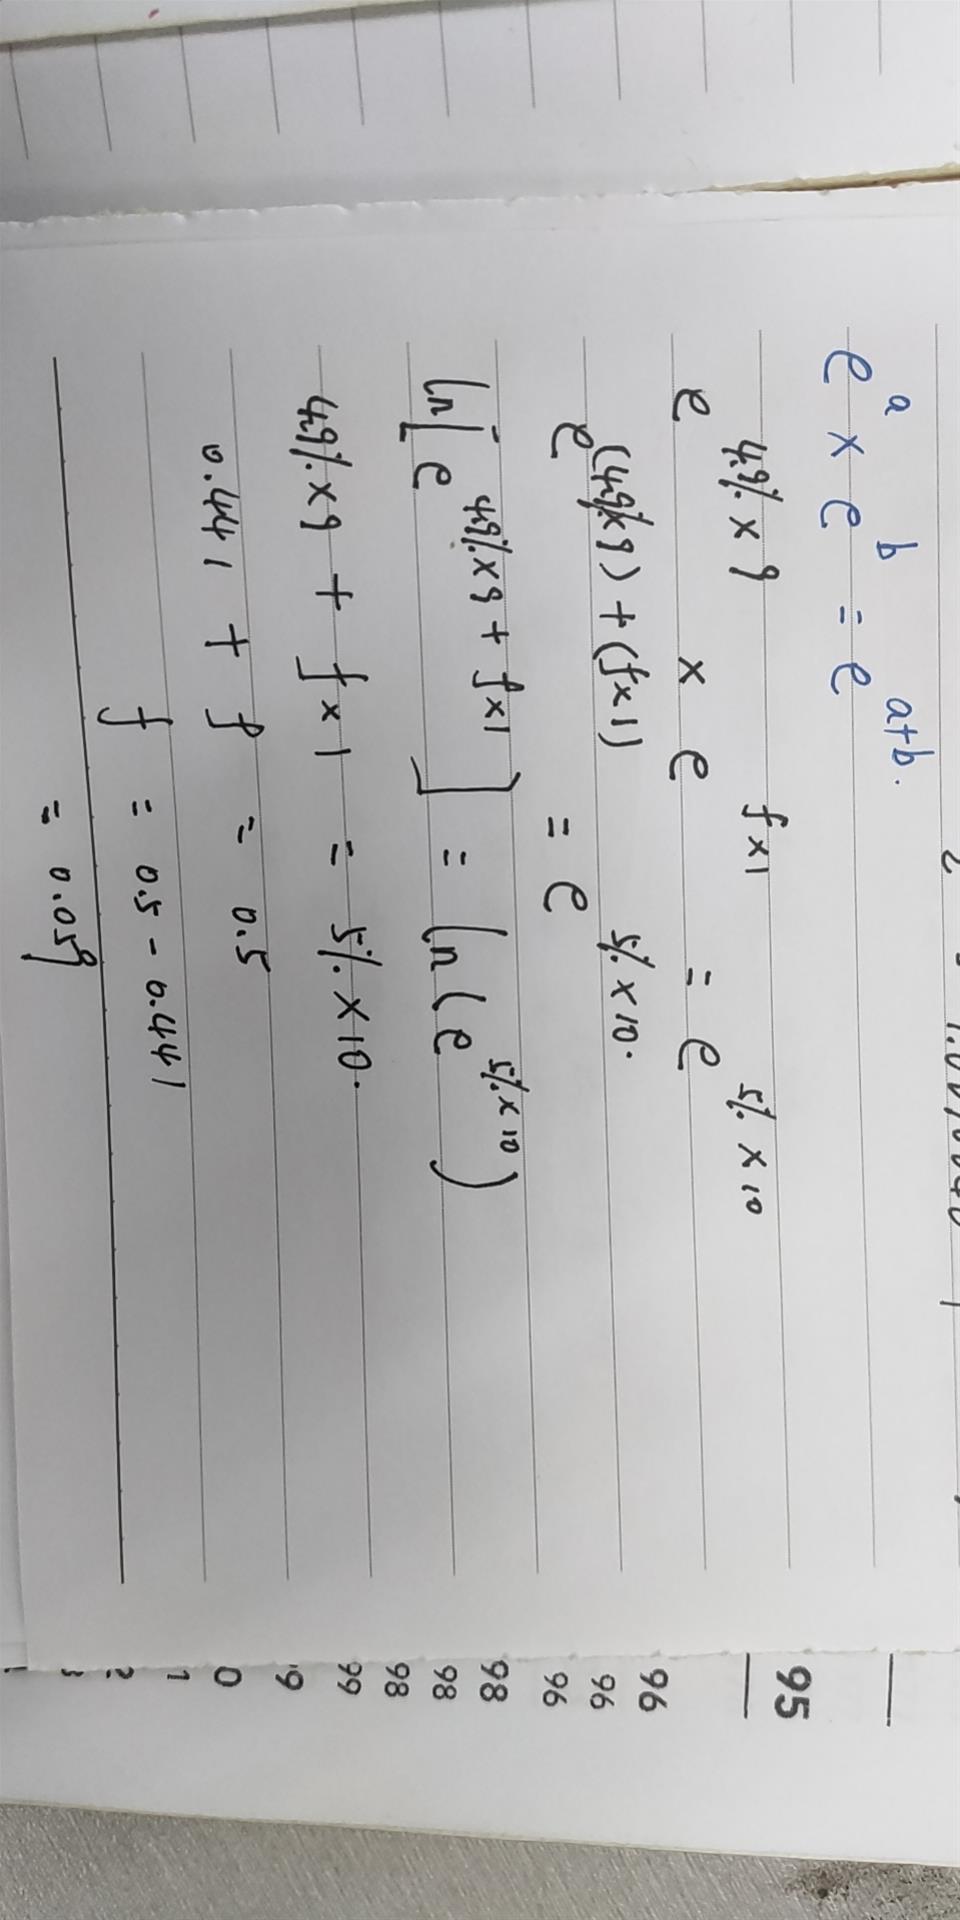 e^a × e^b = e^a+b.
e^4.9% × 9 × e^f×1 = e^5% × 10
e^(4.9%×9) + (f×1) = e^5% × 10.
ln[e^4.9%×9 + f×1] = ln(e^5%×10)
4.9% × 9 + f×1 = 5% × 10.
0.441 + f = 0.5
f = 0.5 - 0.441
= 0.059
95
96
96
96
98
98
98
99
9
0
1
2
3